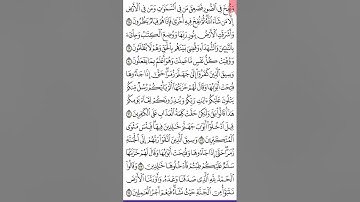 وَنُفِخَ فِي ٱلصُّورِ فَصَعِقَ مَن فِي ٱلسَّمَٰوَٰتِ وَمَن فِي ٱلْأَرْضِ
إِلَّا مَن شَآءَ ٱللَّهُ ثُمَّ نُفِخَ فِيهِ أُخْرَىٰ فَإِذَا هُمْ قِيَامٌ يَنظُرُونَ ٦٨
وَأَشْرَقَتِ ٱلْأَرْضُ بِنُورِ رَبِّهَا وَوُضِعَ ٱلْكِتَٰبُ وَجِا۟ىٓءَ
بِٱلنَّبِيِّـۧنَ وَٱلشُّهَدَآءِ وَقُضِيَ بَيْنَهُم بِٱلْحَقِّ وَهُمْ لَا يُظْلَمُونَ ٦٩
وَوُفِّيَتْ كُلُّ نَفْسٍ مَّا عَمِلَتْ وَهُوَ أَعْلَمُ بِمَا يَفْعَلُونَ ٧٠
وَسِيقَ ٱلَّذِينَ كَفَرُوٓا۟ إِلَىٰ جَهَنَّمَ زُمَرًا حَتَّىٰٓ إِذَا جَآءُوهَا
فُتِحَتْ أَبْوَٰبُهَا وَقَالَ لَهُمْ خَزَنَتُهَآ أَلَمْ يَأْتِكُمْ رُسُلٌ مِّنكُمْ
يَتْلُونَ عَلَيْكُمْ ءَايَٰتِ رَبِّكُمْ وَيُنذِرُونَكُمْ لِقَآءَ يَوْمِكُمْ
هَٰذَا قَالُوا۟ بَلَىٰ وَلَٰكِنْ حَقَّتْ كَلِمَةُ ٱلْعَذَابِ عَلَى ٱلْكَٰفِرِينَ ٧١
قِيلَ ٱدْخُلُوٓا۟ أَبْوَٰبَ جَهَنَّمَ خَٰلِدِينَ فِيهَا فَبِئْسَ مَثْوَى
ٱلْمُتَكَبِّرِينَ ٧٢ وَسِيقَ ٱلَّذِينَ ٱتَّقَوْا۟ رَبَّهُمْ إِلَى ٱلْجَنَّةِ
زُمَرًا حَتَّىٰٓ إِذَا جَآءُوهَا وَفُتِحَتْ أَبْوَٰبُهَا وَقَالَ لَهُمْ خَزَنَتُهَا
سَلَٰمٌ عَلَيْكُمْ طِبْتُمْ فَٱدْخُلُوهَا خَٰلِدِينَ ٧٣ وَقَالُوا۟
ٱلْحَمْدُ لِلَّهِ ٱلَّذِي صَدَقَنَا وَعْدَهُۥ وَأَوْرَثَنَا ٱلْأَرْضَ
نَتَبَوَّأُ مِنَ ٱلْجَنَّةِ حَيْثُ نَشَآءُ فَنِعْمَ أَجْرُ ٱلْعَٰمِلِينَ ٧٤